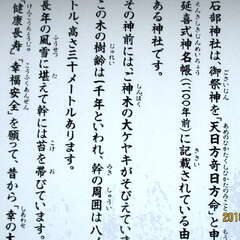 石部神社は、御祭神を「天日方奇日方命」と申
延喜式神名帳(一一〇〇年前)に記載されている由
ある神社です。
その神前には、ご神木の大ケヤキがそびえていま
この木の樹齢は二千年といわれ、幹の周囲は八
トル、高さ三十メートルあります。
長年の風雪に堪えて幹には苔を帯びています。
「健康長寿」「幸福安全」を願って昔から「幸の大